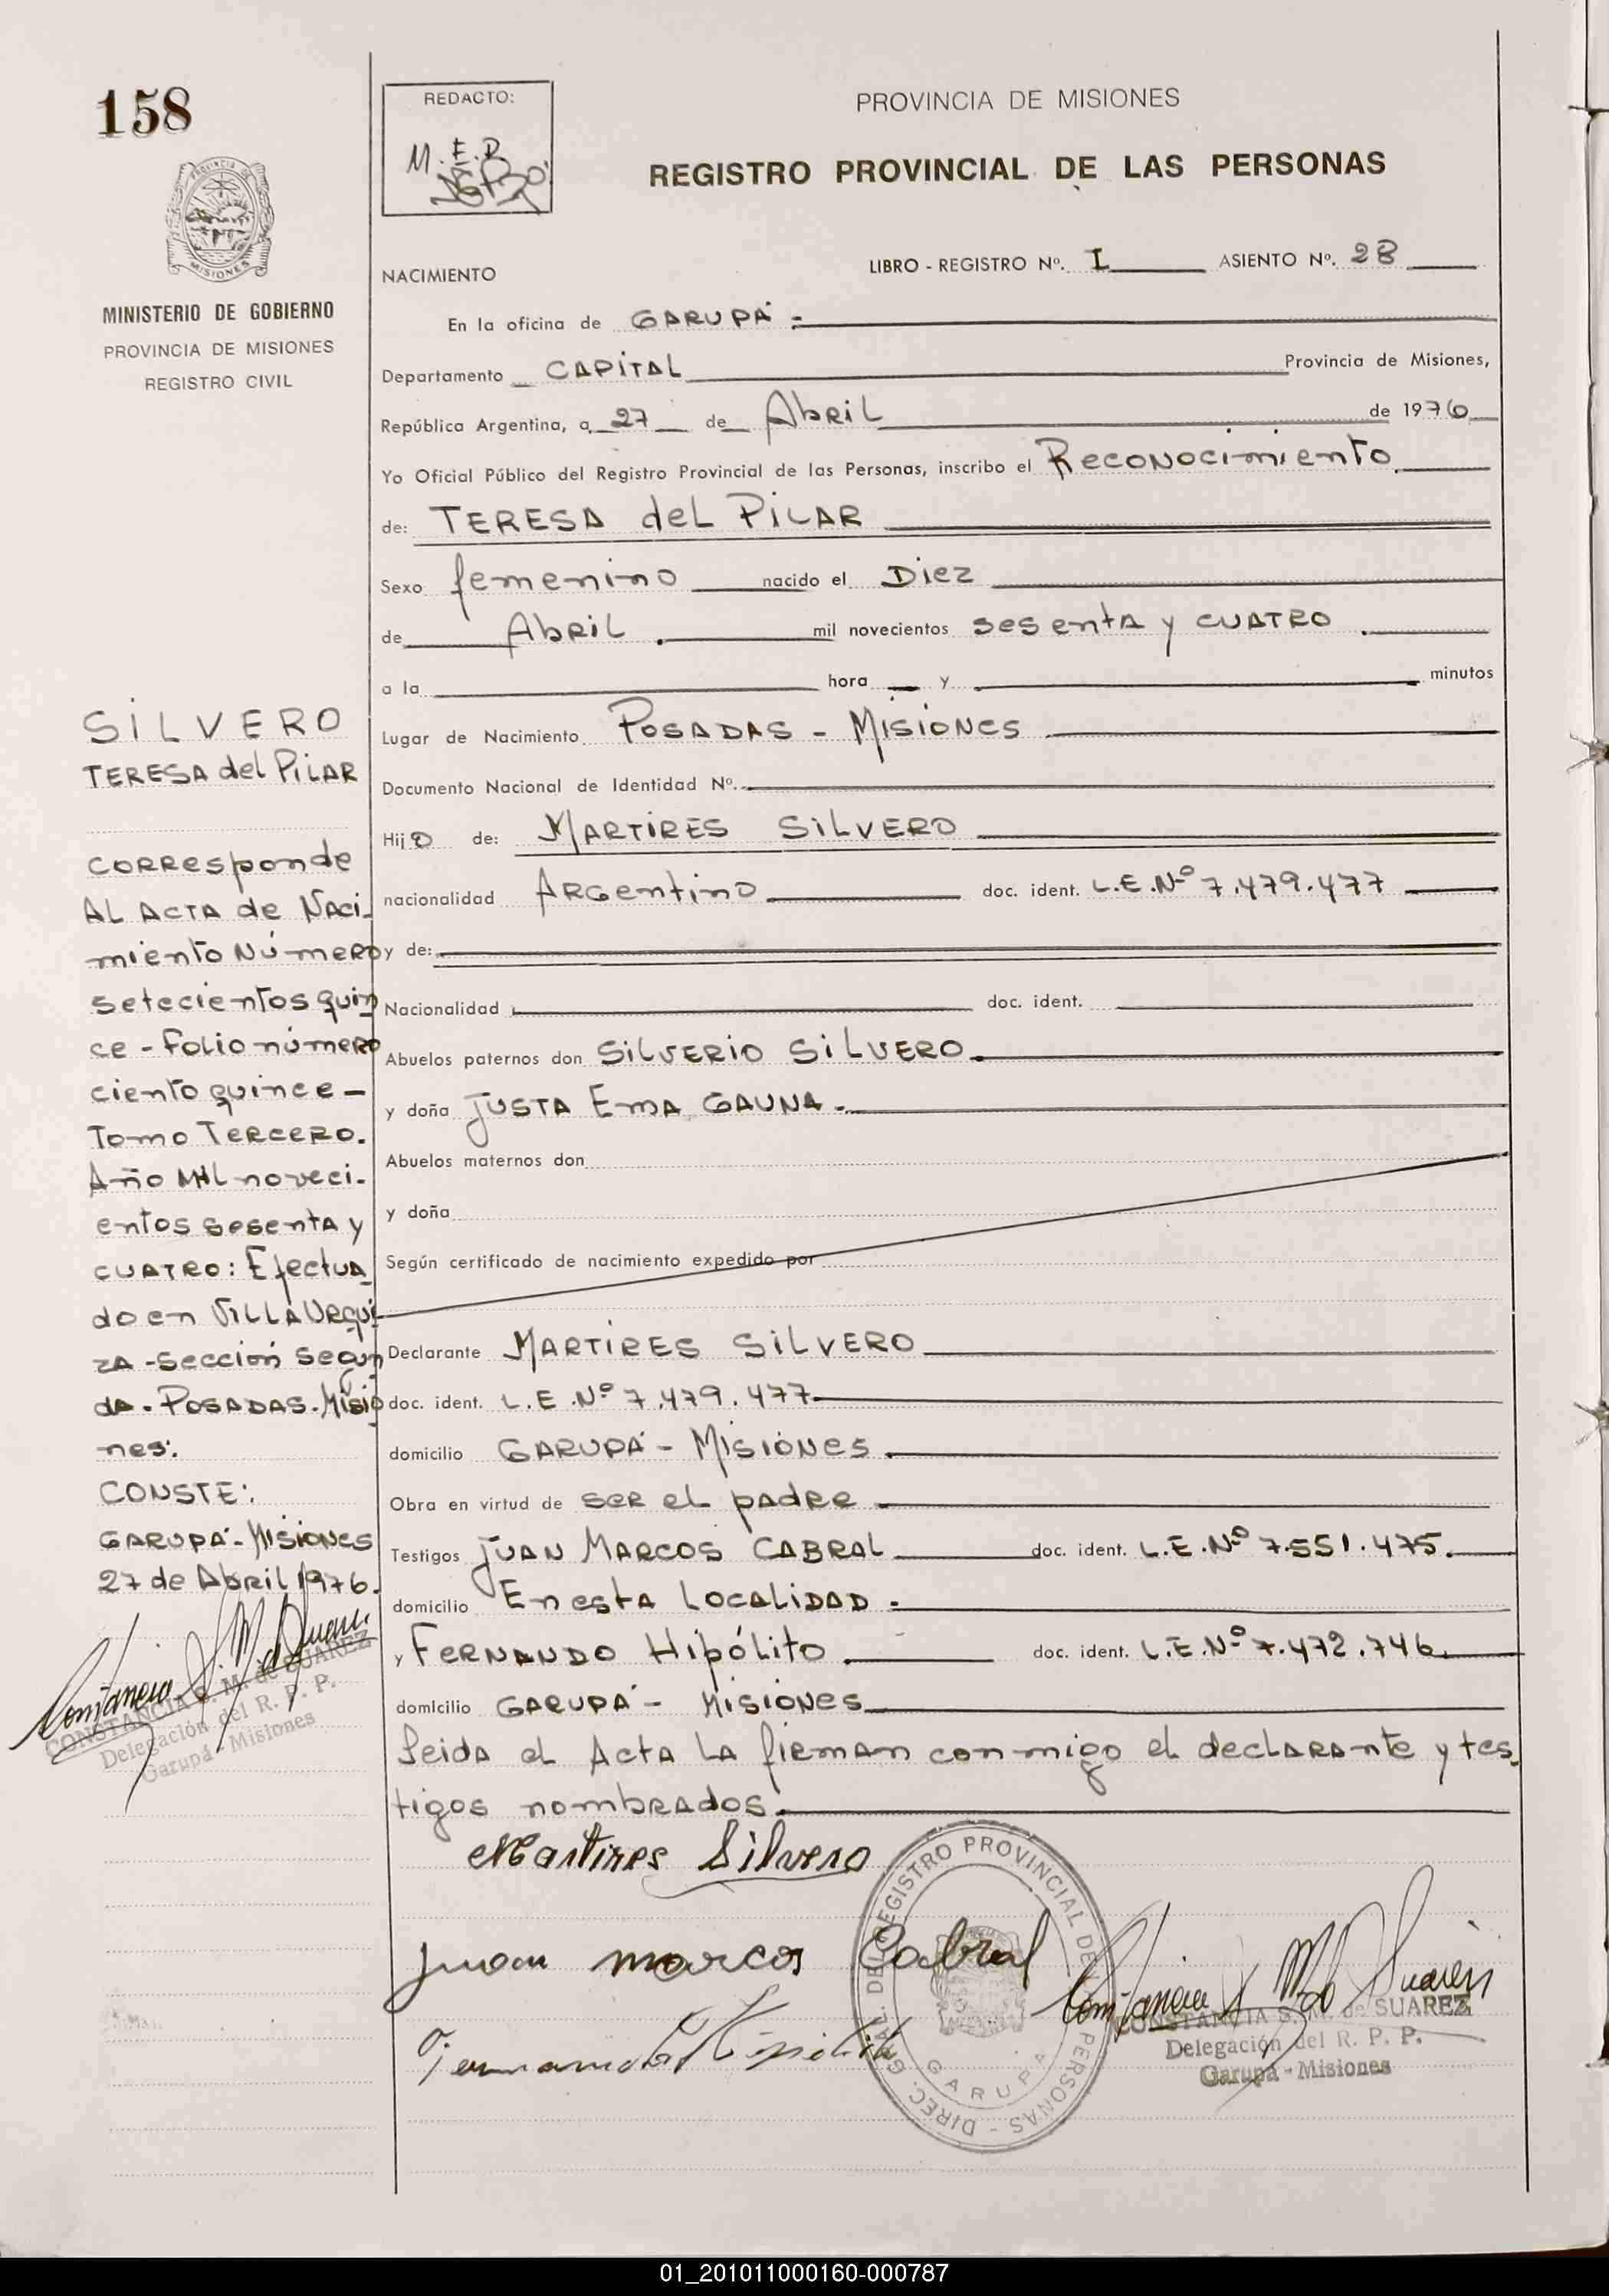 158
REDACTO:
M.E.R
PROVINCIA DE MISIONES
REGISTRO PROVINCIAL DE LAS PERSONAS
MISIONES
MINISTERIO DE GOBIERNO
PROVINCIA DE MISIONES
REGISTRO CIVIL
NACIMIENTO
LIBRO - REGISTRO Nº. I ASIENTO Nº. 28
En la oficina de GARUPÁ
Departamento CAPITAL Provincia de Misiones,
República Argentina, a 27 de Abril de 1976
Yo Oficial Público del Registro Provincial de las Personas, inscribo el Reconocimiento
de: TERESA del PILAR
Sexo femenino nacido el Diez
de Abril mil novecientos sesenta y CUATRO
a la hora y minutos
Lugar de Nacimiento POSADAS - MISIONES
Documento Nacional de Identidad Nº.
Hijo de: MARTIRES SILVERO
nacionalidad ARGentino doc. ident. L.E.Nº 7.479.477
y de:
Nacionalidad doc. ident.
Abuelos paternos don SILVERIO SILVERO
y doña JUSTA EMA GAUNA.
Abuelos maternos don
y doña
Según certificado de nacimiento expedido por
Declarante MARTIRES SILVERO
doc. ident. L.E.Nº 7.479.477
domicilio GARUPÁ - MISIONES
Obra en virtud de SER EL PADRE
Testigos JUAN MARCOS CABRAL doc. ident. L.E.Nº 7.551.475.
domicilio En esta LOCALIDAD
y FERNANDO HIPÓLITO doc. ident. L.E.Nº 7.472.746
domicilio GARUPÁ - MISIONES
Leida el Acta LA firman conmigo el declarante y tes-
tigos nombrados.
SILVERO
TERESA del PILAR
CORResponde
AL ACTA de Naci-
miento NúmeRO
setecientos quin
ce - Folio númeRO
ciento quince -
Tomo TERCERO.
Año MIL noveci-
entos sesenta y
CUATRO: Efectua
do en VILLA URQUI
ZA - Sección Segun
da - POSADAS - Misio
nes.
CONSTE:
GARUPÁ - MISIONES
27 de Abril 1976.
Constancia S. M. de Suarez
CONSTANCIA S. M. de SUAREZ
Delegación del R. P. P.
Garupá - Misiones
Martires Silvero
Juan marcos Cabral
Fernando Hipolito
DIREC. GRAL. DEL REGISTRO PROVINCIAL DE PERSONAS -
GARUPA
Constancia S. M. de Suarez
CONSTANCIA S. M. de SUAREZ
Delegación del R. P. P.
Garupá - Misiones
01_201011000160-000787